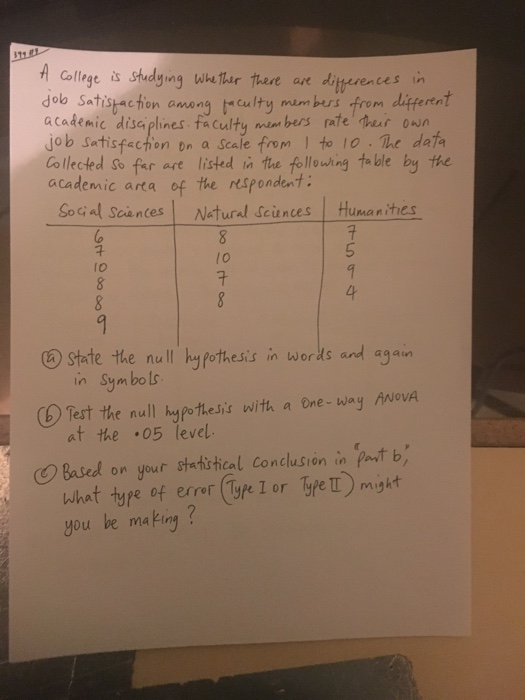 A College is studying whether there are differences in
Job Satisfaction among faculty members from different
academic disciplines. faculty members rate their own
job satisfaction on a scale from 1 to 10. The data
Collected so far are listed in the following table by the
academic area of the respondent:
Social Sciences | Natural Sciences | Humanities
6 8 7
7 10 5
10 7 9
8 8 4
8
9
(a) State the null hypothesis in words and again
in symbols.
(b) Test the null hypothesis with a One-way ANOVA
at the .05 level.
(c) Based on your statistical conclusion in "part b",
what type of error (Type I or Type II) might
you be making?